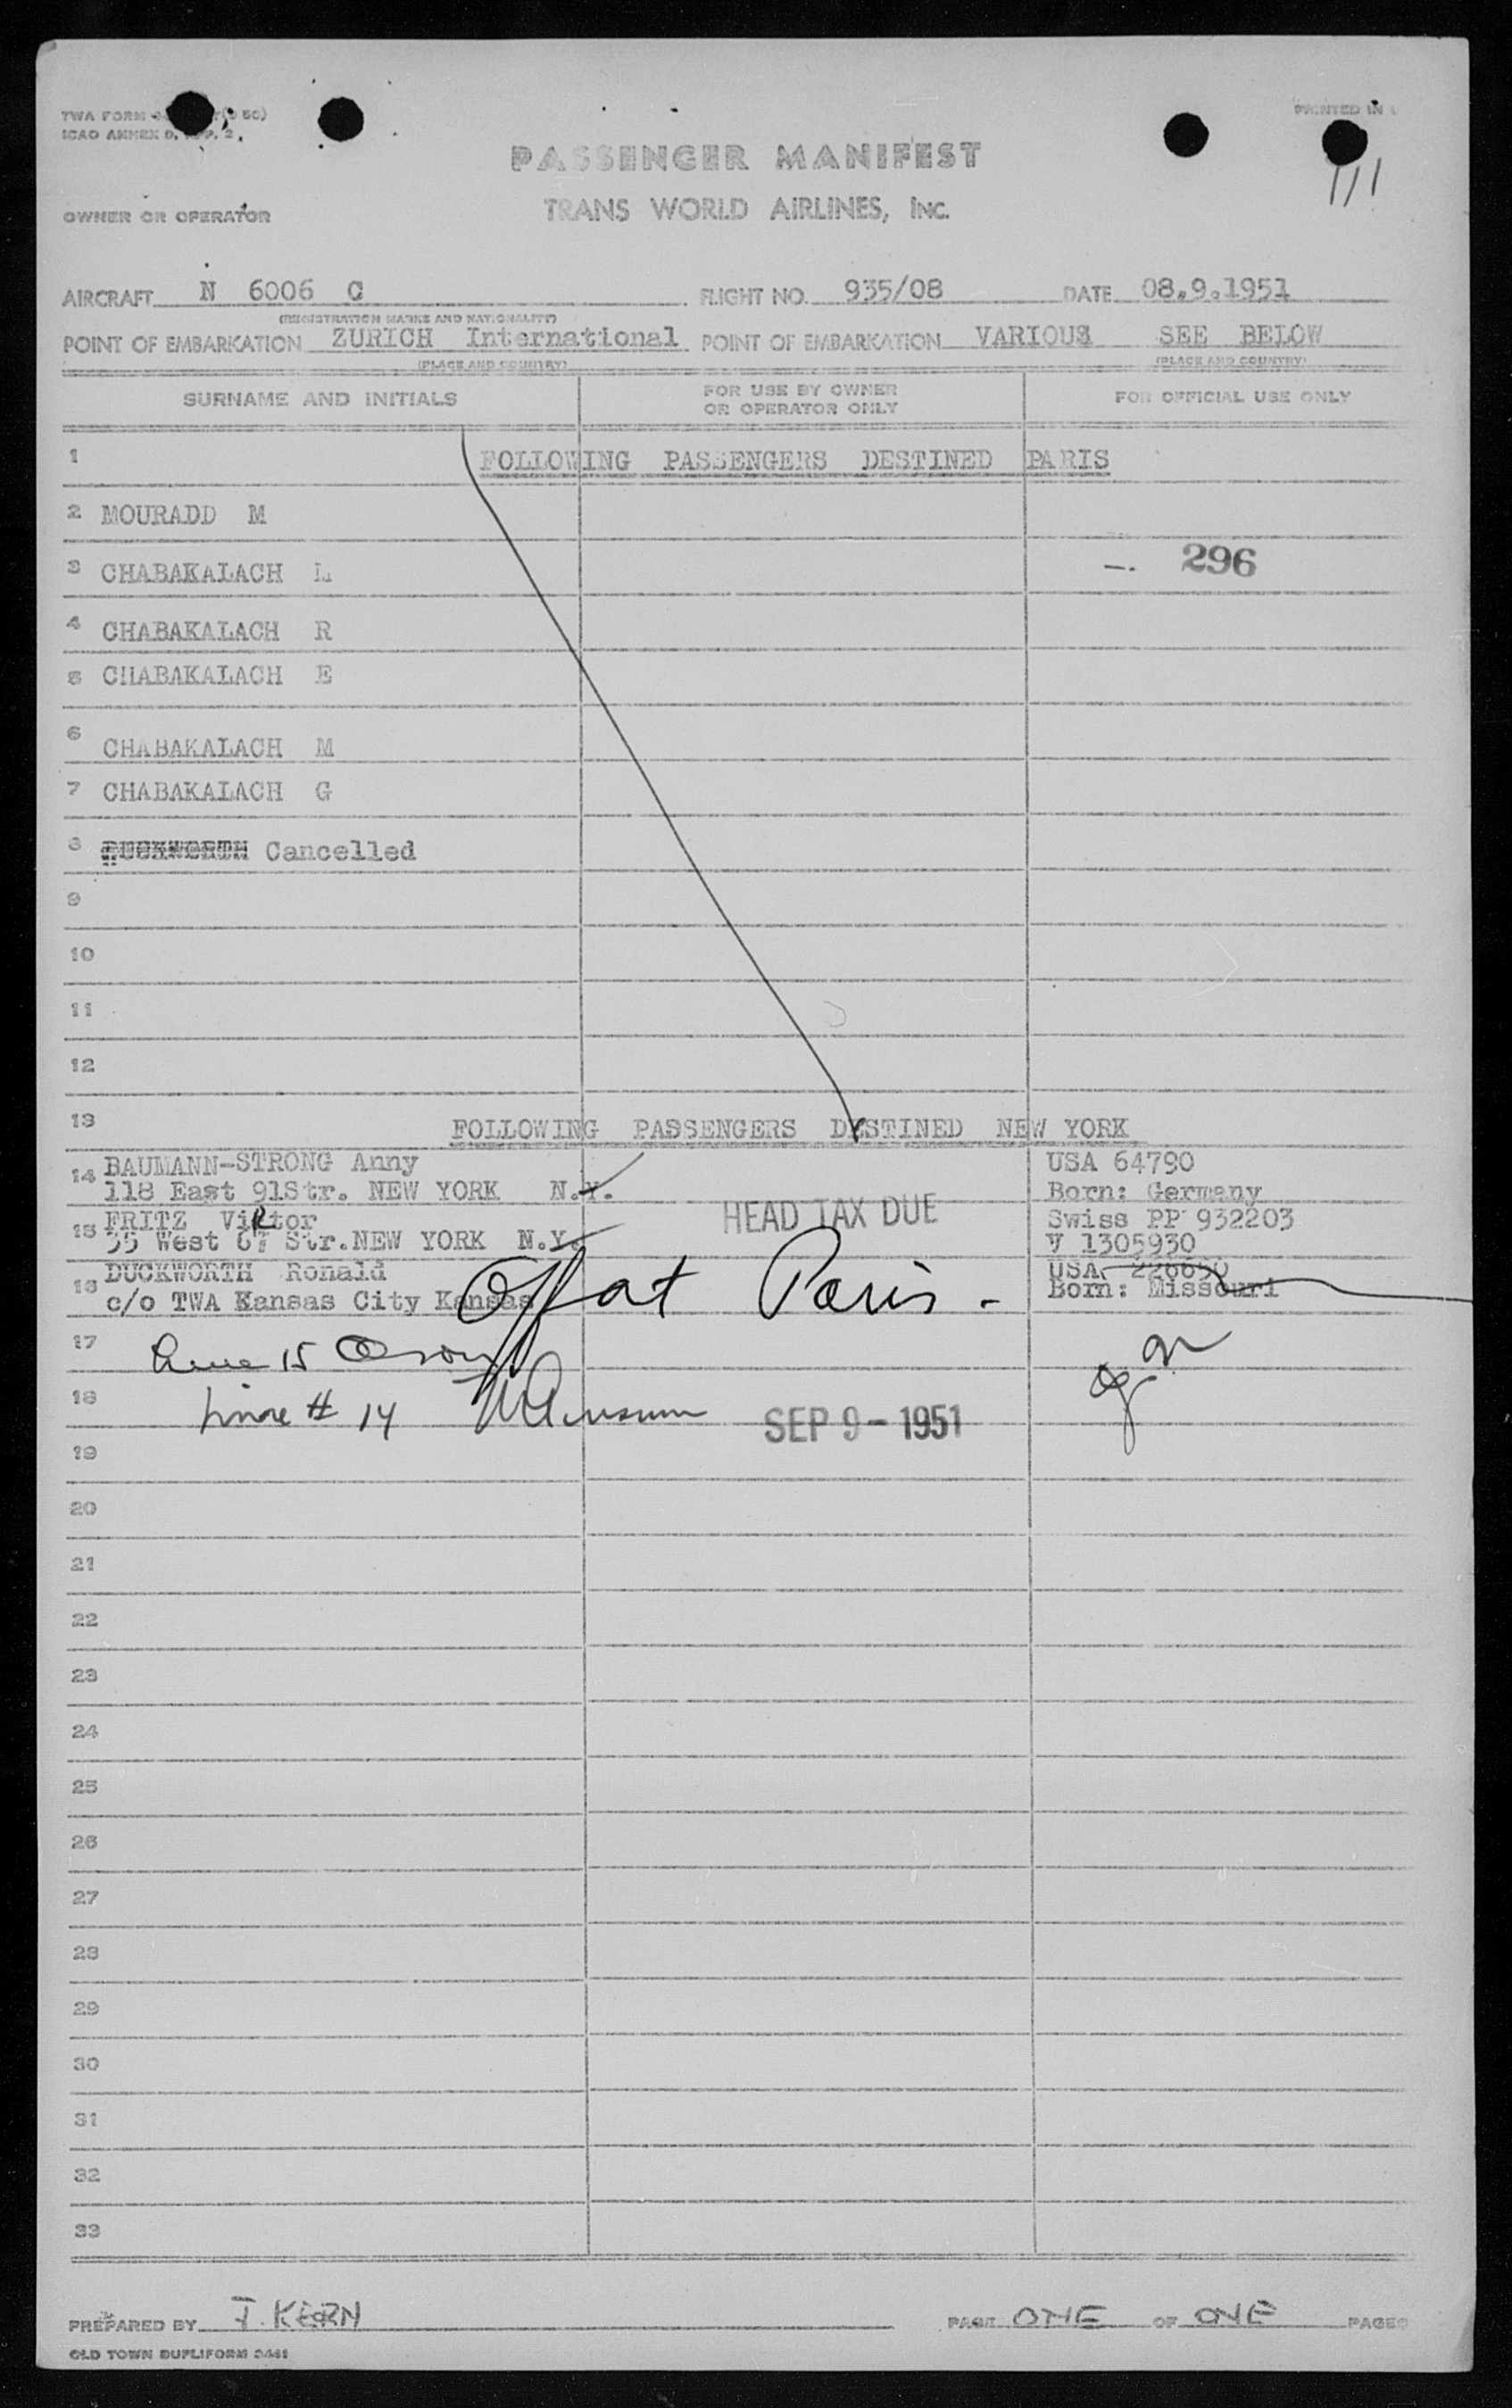 TWA FORM
ICAO ANNEX 9, APP. 2.
PRINTED IN
111
PASSENGER MANIFEST
OWNER OR OPERATOR
TRANS WORLD AIRLINES, INC.
AIRCRAFT N 6006 C FLIGHT NO. 935/08 DATE 08.9.1951
(REGISTRATION MARKS AND NATIONALITY)
POINT OF EMBARKATION ZURICH International POINT OF EMBARKATION VARIOUS SEE BELOW
(PLACE AND COUNTRY) (PLACE AND COUNTRY)
SURNAME AND INITIALS FOR USE BY OWNER OR OPERATOR ONLY FOR OFFICIAL USE ONLY
1 FOLLOWING PASSENGERS DESTINED PARIS
2 MOURADD M
3 CHABAKALACH L 296
4 CHABAKALACH R
5 CHABAKALACH E
6 CHABAKALACH M
7 CHABAKALACH G
8 DUCKWORTH Cancelled
9
10
11
12
13 FOLLOWING PASSENGERS DESTINED NEW YORK
14 BAUMANN-STRONG Anny USA 64790
118 East 91Str. NEW YORK N.Y. Born: Germany
HEAD TAX DUE
15 FRITZ Viktor Swiss PP 932203
55 West 67 Str. NEW YORK N.Y. V 1305930
16 DUCKWORTH Ronald USA 226650
c/o TWA Kansas City Kansas Born: Missouri
Off at Paris -
17 Line 15
18 Line # 14 SEP 9 - 1951
19
20
21
22
23
24
25
26
27
28
29
30
31
32
33
PREPARED BY T. KERN PAGE ONE OF ONE PAGES
OLD TOWN DUPLIFORM 3461